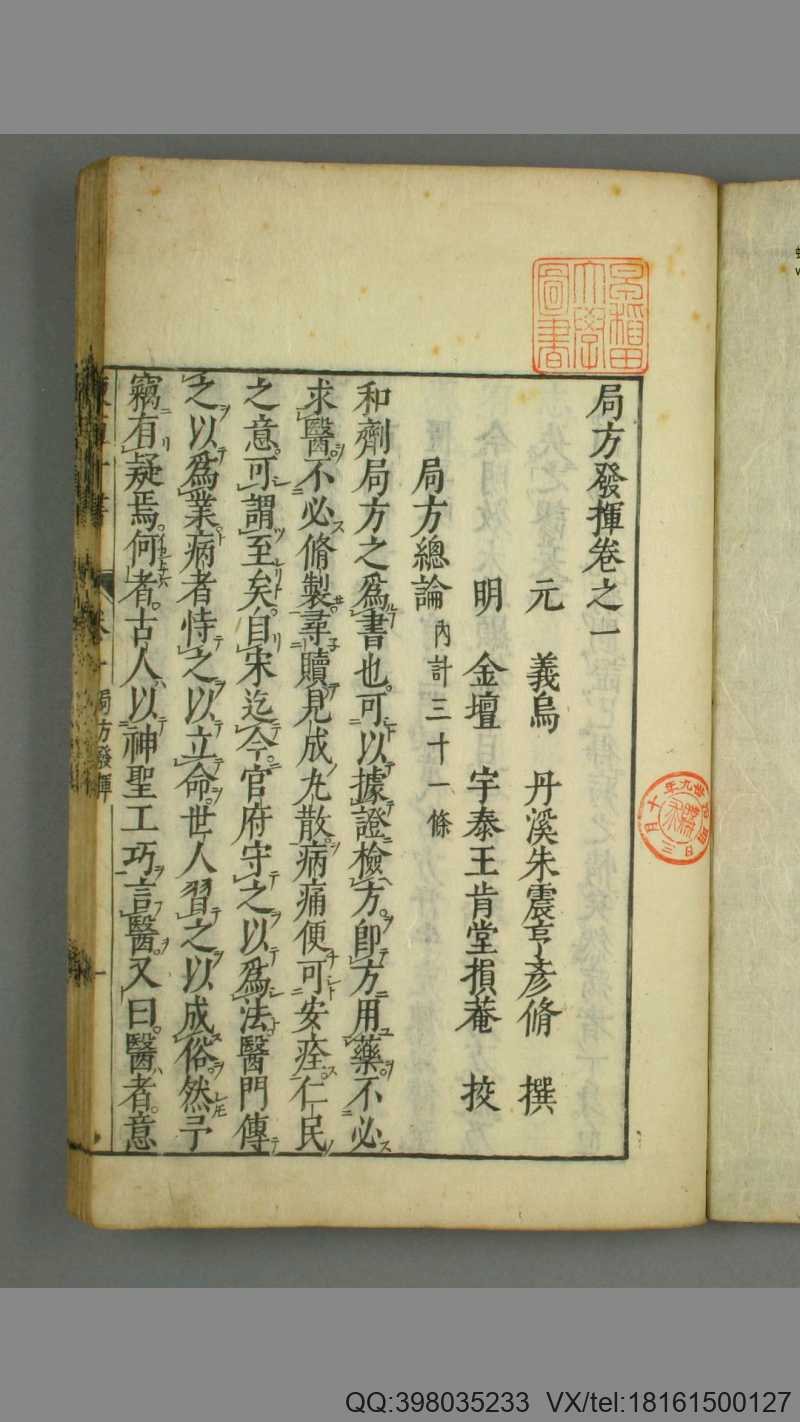 局方發揮卷之一
元　義烏　丹溪朱震亨彥脩　撰
明　金壇　宇泰王肯堂損菴　挍
局方總論 內計三十一條
和劑局方之爲書也可以據證檢方卽方用藥不必
求醫不必脩製尋贖見成丸散病痛便可安痊仁民
之意可謂至矣自宋迄今官府守之以爲法醫門傳
之以爲業病者恃之以立命世人習之以成俗然予
竊有疑焉何者古人以神聖工巧言醫又曰醫者意
局方發揮
早稻田
大學
圖書
QQ:398035233 VX/tel:18161500127